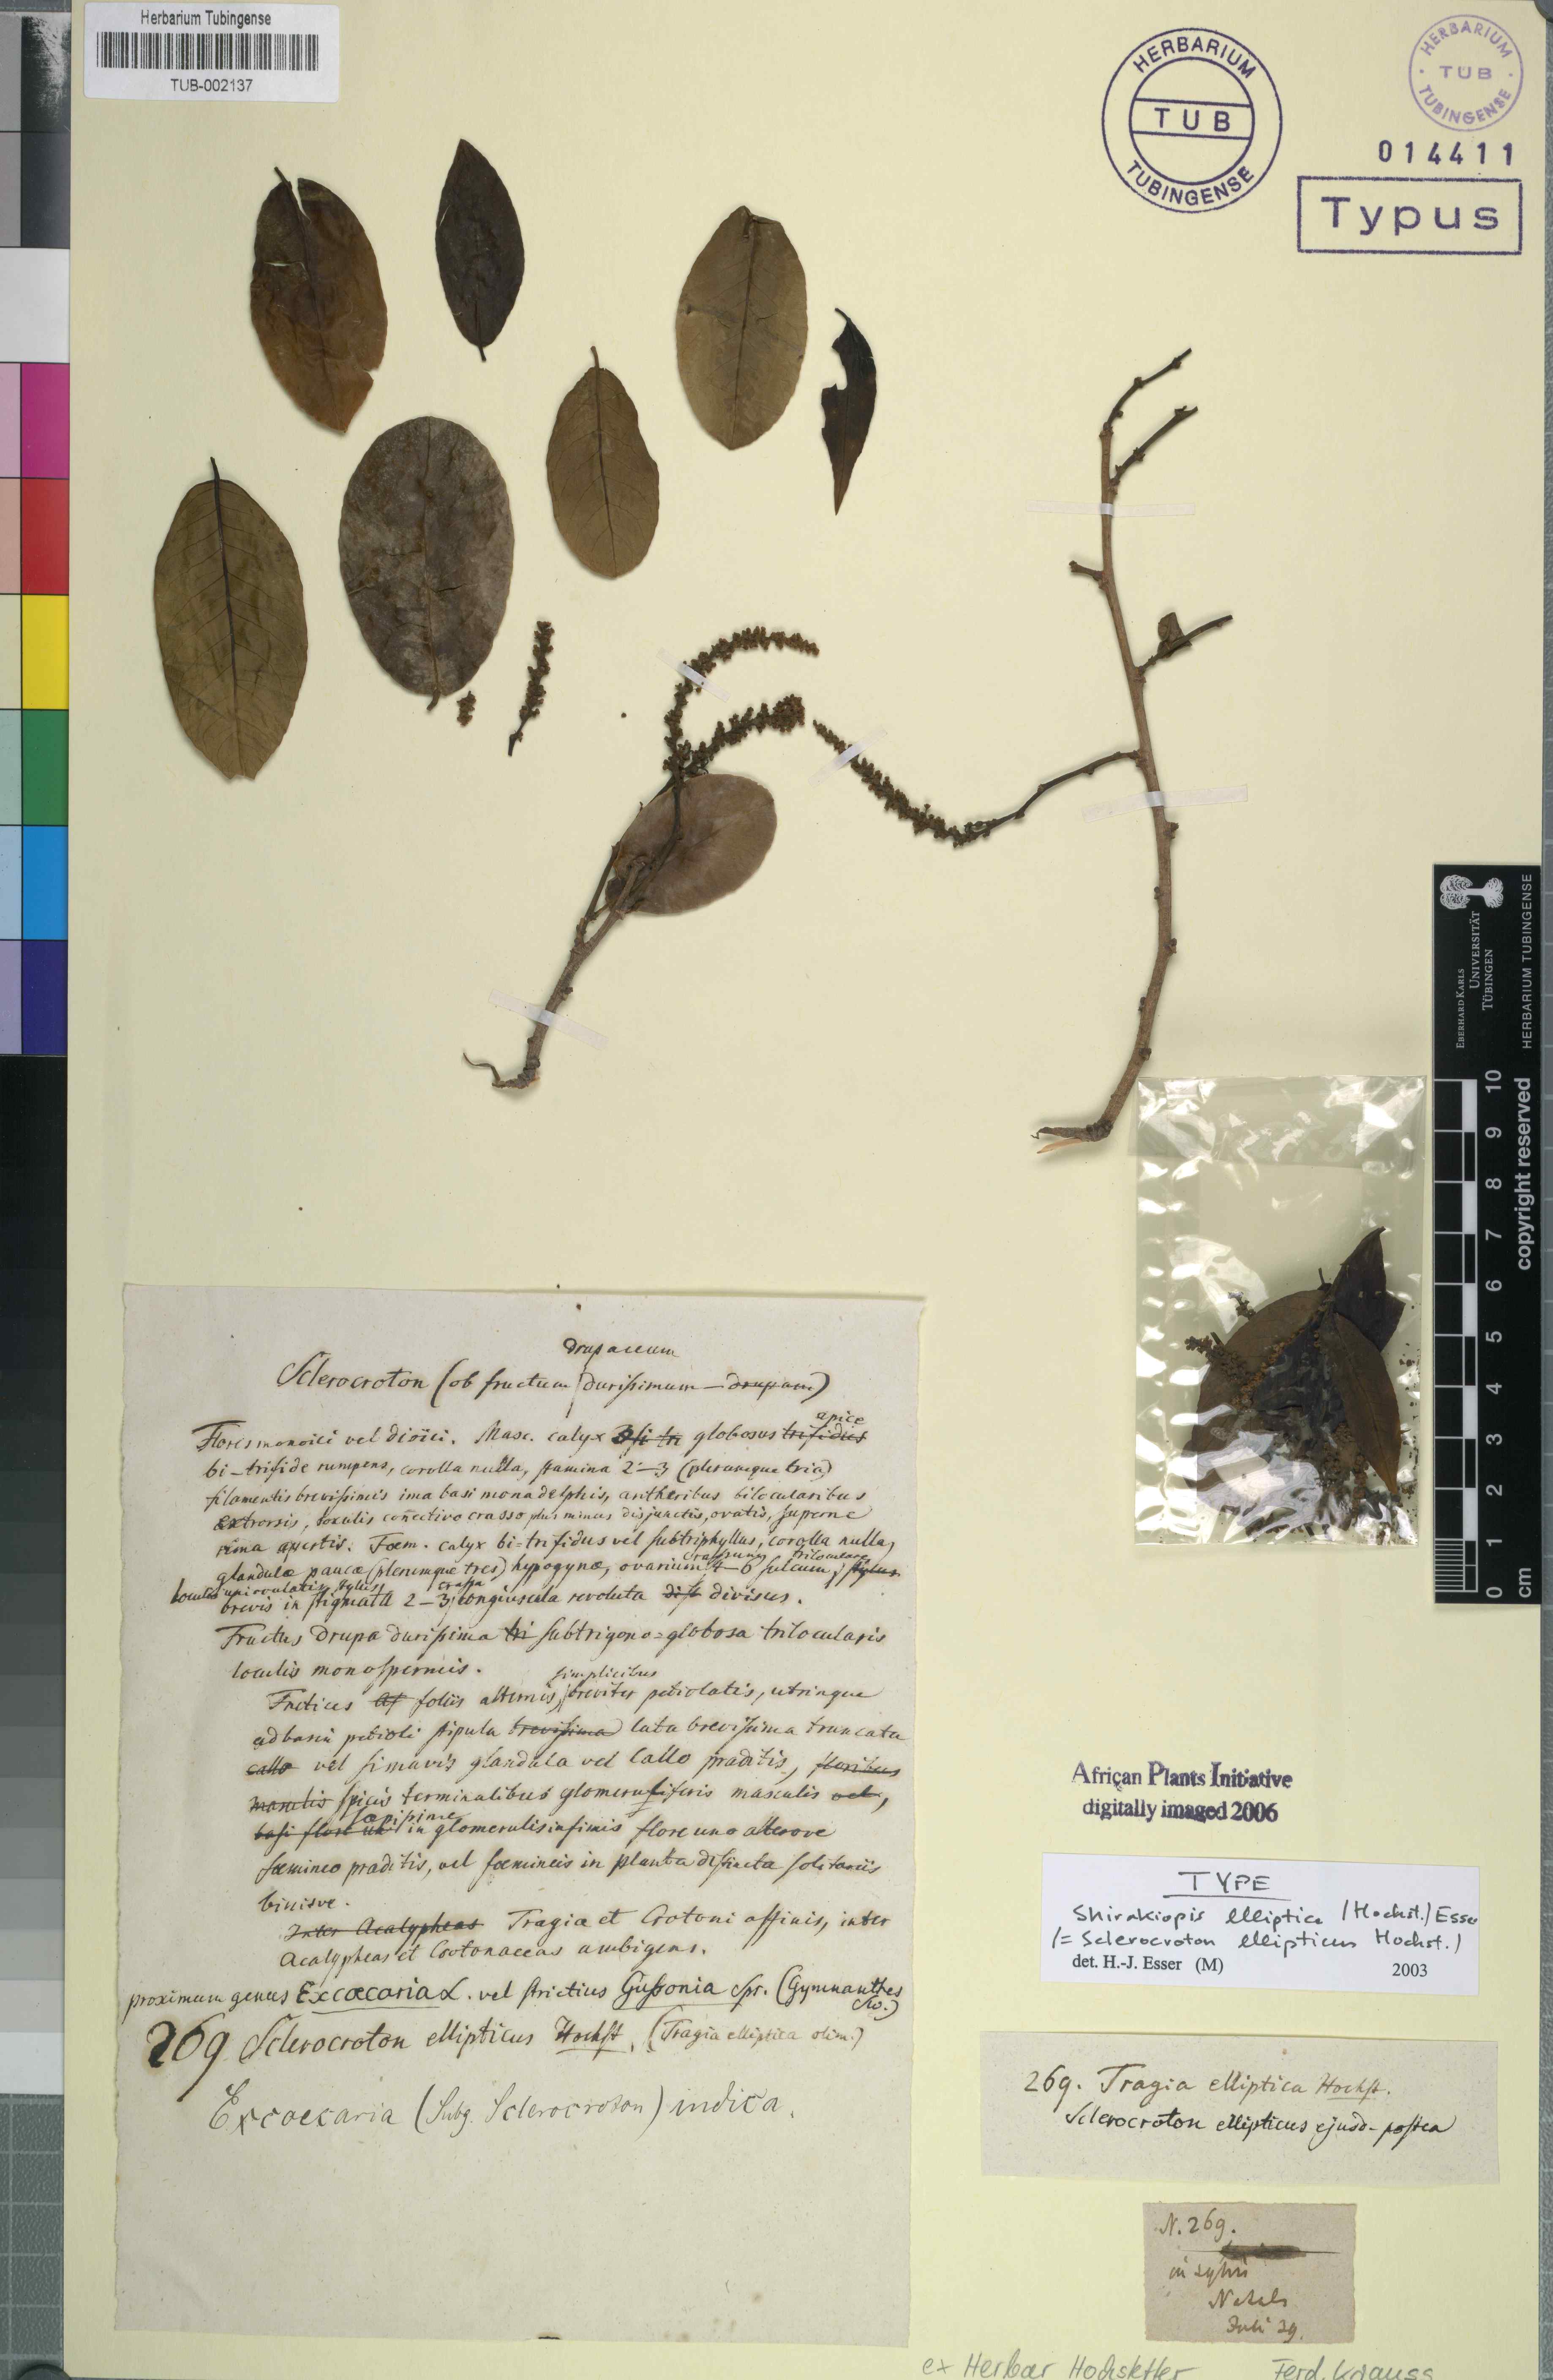 Herbarium Tubingense
TUB-002137
HERBARIUM
TUB
TUBINGENSE
HERBARIUM
TUB
TUBINGENSE
014411
Typus
EBERHARD KARLS
UNIVERSITÄT
TÜBINGEN
HERBARIUM TUBINGENSE
copyright reserved
0 1 2 3 4 5 6 7 8 9 10
cm
drupaceum
Sclerocroton (ob fructum durissimum — drupam)
apice
Flores monoici vel dioici. Masc. calyx globosus trifidus
bi-trifide rumpens, corolla nulla, stamina 2-3 (plerumque tria)
filamentis brevissimis ima basi monadelphis, antheribus bilocularibus
extrorsis, loculis connectivo crasso plus minus disjunctis, ovatis, superne
rima apertis. Foem. calyx bi-trifidus vel subtriphyllus, corolla nulla,
crassum triloculare
glandulæ paucæ (plerumque tres) hypogynæ, ovarium 4-6 sulcum, stylus
loculis uniovulatis, stylus crassa
brevis in stigmata 2-3 longiuscula revoluta divisus.
Fructus drupa durissima tri subtrigono-globosa trilocularis
loculis monospermis.
simplicibus
Frutices foliis alternis, breviter petiolatis, utrinque
ad basin petioli stipula brevissima lata brevissima truncata
callo vel simavis glandula vel callo præditis, floribus
masculis spicis terminalibus glomeruliferis masculis vel,
sæpissime
basi flore in glomerulis infimis flore uno alterove
foemineo præditis, vel foemineis in planta distincta solitariis
binisve.
Inter Acalypheas Tragia et Crotoni affinis, inter
Acalypheas et Crotonaceas ambigens.
proximum genus Excoecaria L. vel strictius Gussonia Spr. (Gymnanthes
Sw.)
269. Sclerocroton ellipticus Hochst. (Tragia elliptica olim.)
Excoecaria (Subg. Sclerocroton) indica.
African Plants Initiative
digitally imaged 2006
TYPE
Shirakiopis elliptica (Hochst.) Esser
(= Sclerocroton ellipticus Hochst.)
det. H.-J. Esser (M) 2003
269. Tragia elliptica Hochst.
Sclerocroton ellipticus ejusd. postea
N. 269.
in sylvis
Natals
Juli 39.
ex Herbar Hochstetter Ferd. Krauss